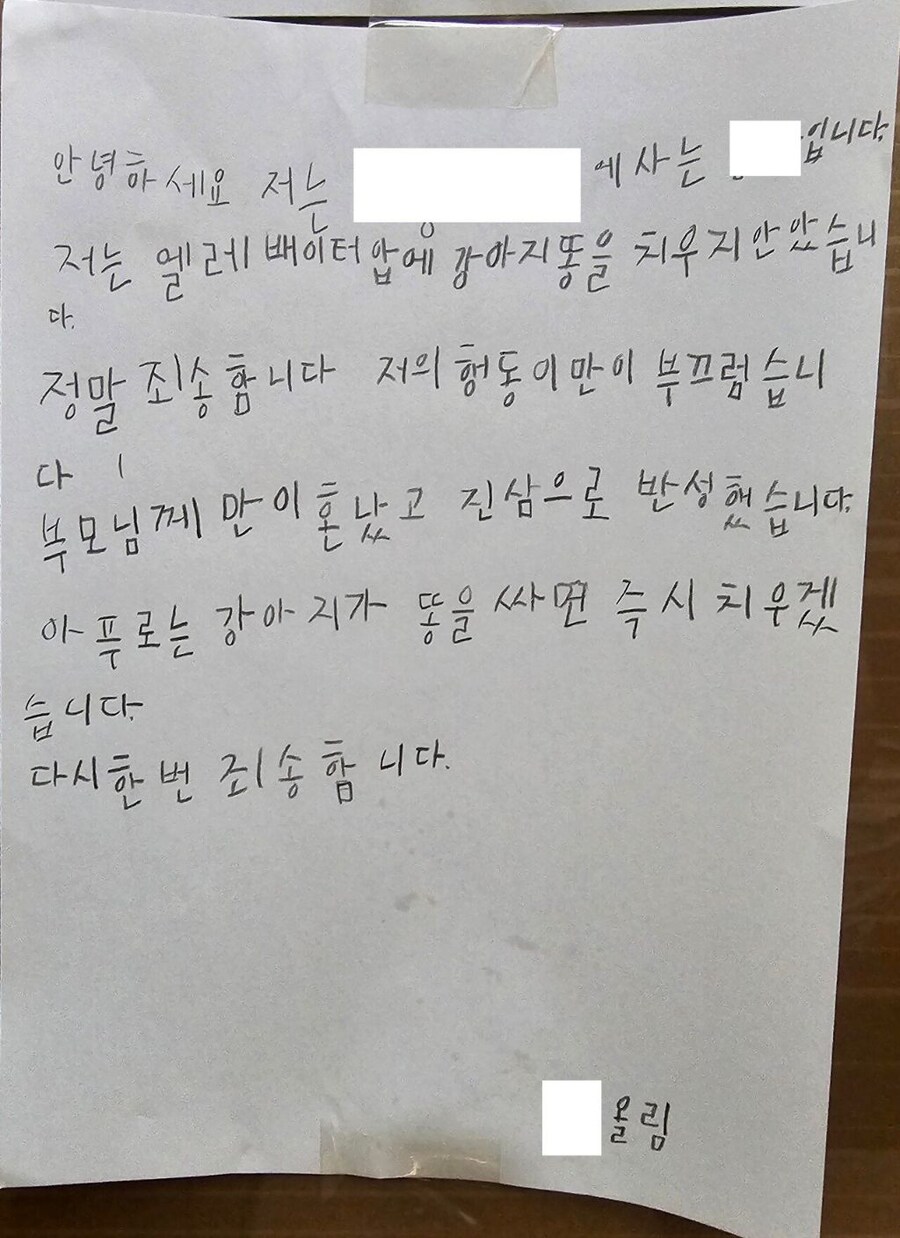 안녕하세요 저는 에 사는 입니다.
저는 엘레배이터 압에 강아지똥을 치우지 안았습니
다.
정말 죄송함니다 저의 헹동이 만이 부끄럼습니
다
부모님께 만이 혼났고 진삼으로 반성했습니다.
아푸로는 강아지가 똥을 싸면 즉시 치우겠
습니다.
다시 한번 죄송함니다.
올림